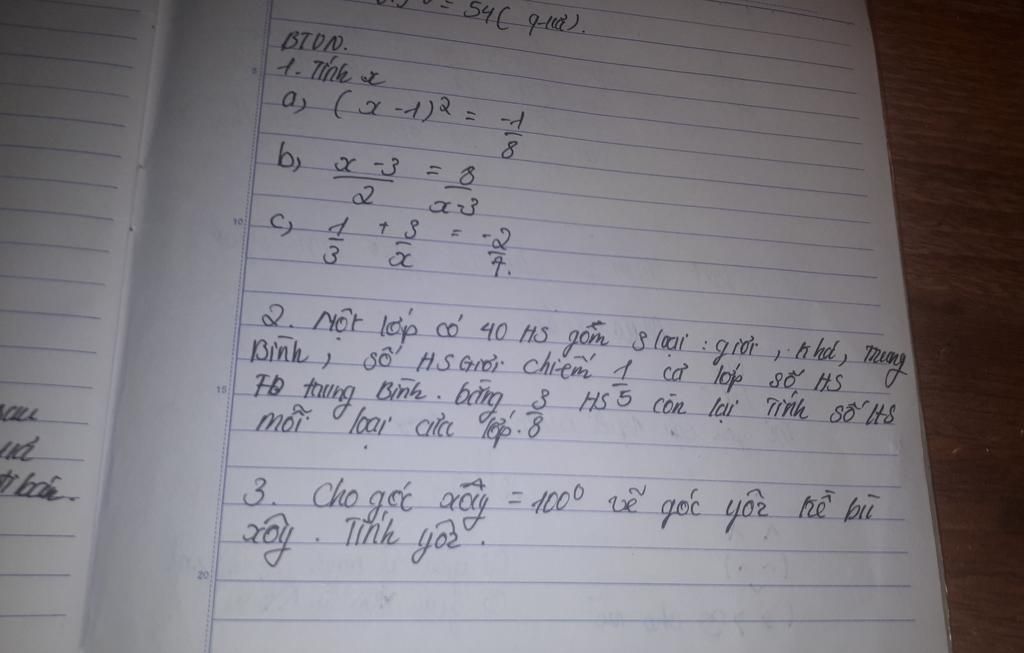 = 54 ( quả).
BTDN.
1. Tính x
a, ( x - 1)² = -1/8
b, x - 3/2 = 8/x-3
c, 1/3 + 3/x = -2/7.
2. Một lớp có 40 HS gồm 3 loại : giỏi, khá, Trung
Bình, số HS Giỏi chiếm 1/5 cả lớp số HS
TB trung Bình. bằng 3/8 HS còn lại Tính số HS
mỗi loại của lớp.
3. Cho góc xôy = 100⁰ vẽ góc yôz kề bù
xôy. Tính yôz.